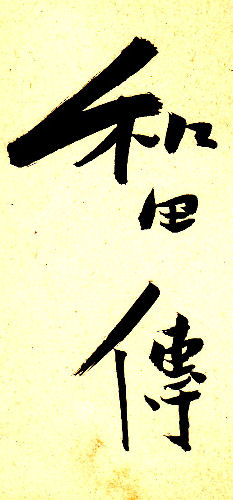 和田傳